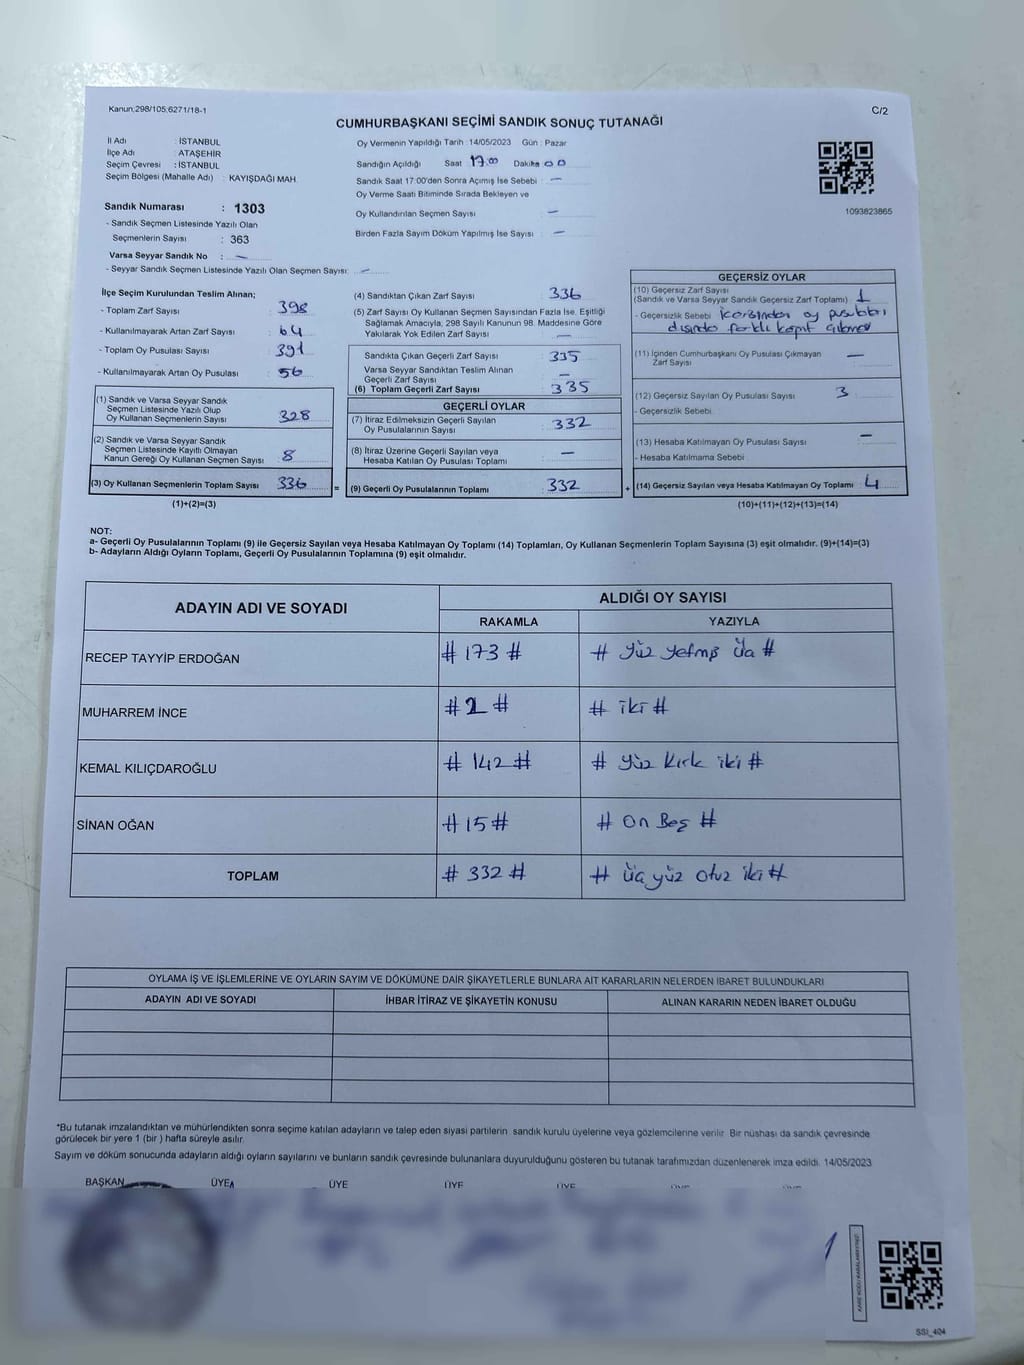 Kanun;298/105;6271/18-1
C/2
CUMHURBAŞKANI SEÇİMİ SANDIK SONUÇ TUTANAĞI
İl Adı : İSTANBUL
İlçe Adı : ATAŞEHİR
Seçim Çevresi : İSTANBUL
Seçim Bölgesi (Mahalle Adı) : KAYIŞDAĞI MAH.
Sandık Numarası : 1303
- Sandık Seçmen Listesinde Yazılı Olan
Seçmenlerin Sayısı : 363
Varsa Seyyar Sandık No : —
- Seyyar Sandık Seçmen Listesinde Yazılı Olan Seçmen Sayısı: —
Oy Vermenin Yapıldığı Tarih : 14/05/2023 Gün : Pazar
Sandığın Açıldığı Saat 17:00 Dakika 00
Sandık Saat 17:00'den Sonra Açımış İse Sebebi —
Oy Verme Saati Bitiminde Sırada Bekleyen ve
Oy Kullandırılan Seçmen Sayısı —
Birden Fazla Sayım Döküm Yapılmış İse Sayısı : —
1093823865
İlçe Seçim Kurulundan Teslim Alınan;
- Toplam Zarf Sayısı : 398
- Kullanılmayarak Artan Zarf Sayısı : 64
- Toplam Oy Pusulası Sayısı : 391
- Kullanılmayarak Artan Oy Pusulası : 56
(1) Sandık ve Varsa Seyyar Sandık
Seçmen Listesinde Yazılı Olup
Oy Kullanan Seçmenlerin Sayısı : 328
(2) Sandık ve Varsa Seyyar Sandık
Seçmen Listesinde Kayıtlı Olmayan
Kanun Gereği Oy Kullanan Seçmen Sayısı : 8
(3) Oy Kullanan Seçmenlerin Toplam Sayısı : 336
(1)+(2)=(3)
(4) Sandıktan Çıkan Zarf Sayısı : 336
(5) Zarf Sayısı Oy Kullanan Seçmen Sayısından Fazla İse, Eşitliği
Sağlamak Amacıyla; 298 Sayılı Kanunun 98. Maddesine Göre
Yakılarak Yok Edilen Zarf Sayısı : —
Sandıkta Çıkan Geçerli Zarf Sayısı : 335
Varsa Seyyar Sandıktan Teslim Alınan
Geçerli Zarf Sayısı : —
(6) Toplam Geçerli Zarf Sayısı : 335
GEÇERLİ OYLAR
(7) İtiraz Edilmeksizin Geçerli Sayılan
Oy Pusulalarının Sayısı : 332
(8) İtiraz Üzerine Geçerli Sayılan veya
Hesaba Katılan Oy Pusulası Toplamı : —
= (9) Geçerli Oy Pusulalarının Toplamı : 332
GEÇERSİZ OYLAR
(10) Geçersiz Zarf Sayısı
(Sandık ve Varsa Seyyar Sandık Geçersiz Zarf Toplamı) : 1
- Geçersizlik Sebebi : içerisinden oy pusulası
dışında farklı kağıt çıkması
(11) İçinden Cumhurbaşkanı Oy Pusulası Çıkmayan
Zarf Sayısı : —
(12) Geçersiz Sayılan Oy Pusulası Sayısı : 3
- Geçersizlik Sebebi :
(13) Hesaba Katılmayan Oy Pusulası Sayısı : —
- Hesaba Katılmama Sebebi :
+ (14) Geçersiz Sayılan veya Hesaba Katılmayan Oy Toplamı : 4
(10)+(11)+(12)+(13)=(14)
NOT:
a- Geçerli Oy Pusulalarının Toplamı (9) ile Geçersiz Sayılan veya Hesaba Katılmayan Oy Toplamı (14) Toplamları, Oy Kullanan Seçmenlerin Toplam Sayısına (3) eşit olmalıdır. (9)+(14)=(3)
b- Adayların Aldığı Oyların Toplamı, Geçerli Oy Pusulalarının Toplamına (9) eşit olmalıdır.
ADAYIN ADI VE SOYADI ALDIĞI OY SAYISI
RAKAMLA YAZIYLA
RECEP TAYYİP ERDOĞAN # 173 # # Yüz yetmiş üç #
MUHARREM İNCE # 2 # # iki #
KEMAL KILIÇDAROĞLU # 142 # # Yüz kırk iki #
SİNAN OĞAN # 15 # # On Beş #
TOPLAM # 332 # # Üç yüz otuz iki #
OYLAMA İŞ VE İŞLEMLERİNE VE OYLARIN SAYIM VE DÖKÜMÜNE DAİR ŞİKAYETLERLE BUNLARA AİT KARARLARIN NELERDEN İBARET BULUNDUKLARI
ADAYIN ADI VE SOYADI İHBAR İTİRAZ VE ŞİKAYETİN KONUSU ALINAN KARARIN NEDEN İBARET OLDUĞU
*Bu tutanak imzalandıktan ve mühürlendikten sonra seçime katılan adayların ve talep eden siyasi partilerin sandık kurulu üyelerine veya gözlemcilerine verilir. Bir nüshası da sandık çevresinde
görülecek bir yere 1 (bir ) hafta süreyle asılır.
Sayım ve döküm sonucunda adayların aldığı oyların sayılarını ve bunların sandık çevresinde bulunanlara duyurulduğunu gösteren bu tutanak tarafımızdan düzenlenerek imza edildi. 14/05/2023
BAŞKAN ÜYE ÜYE ÜYE ÜYE
SSİ_404